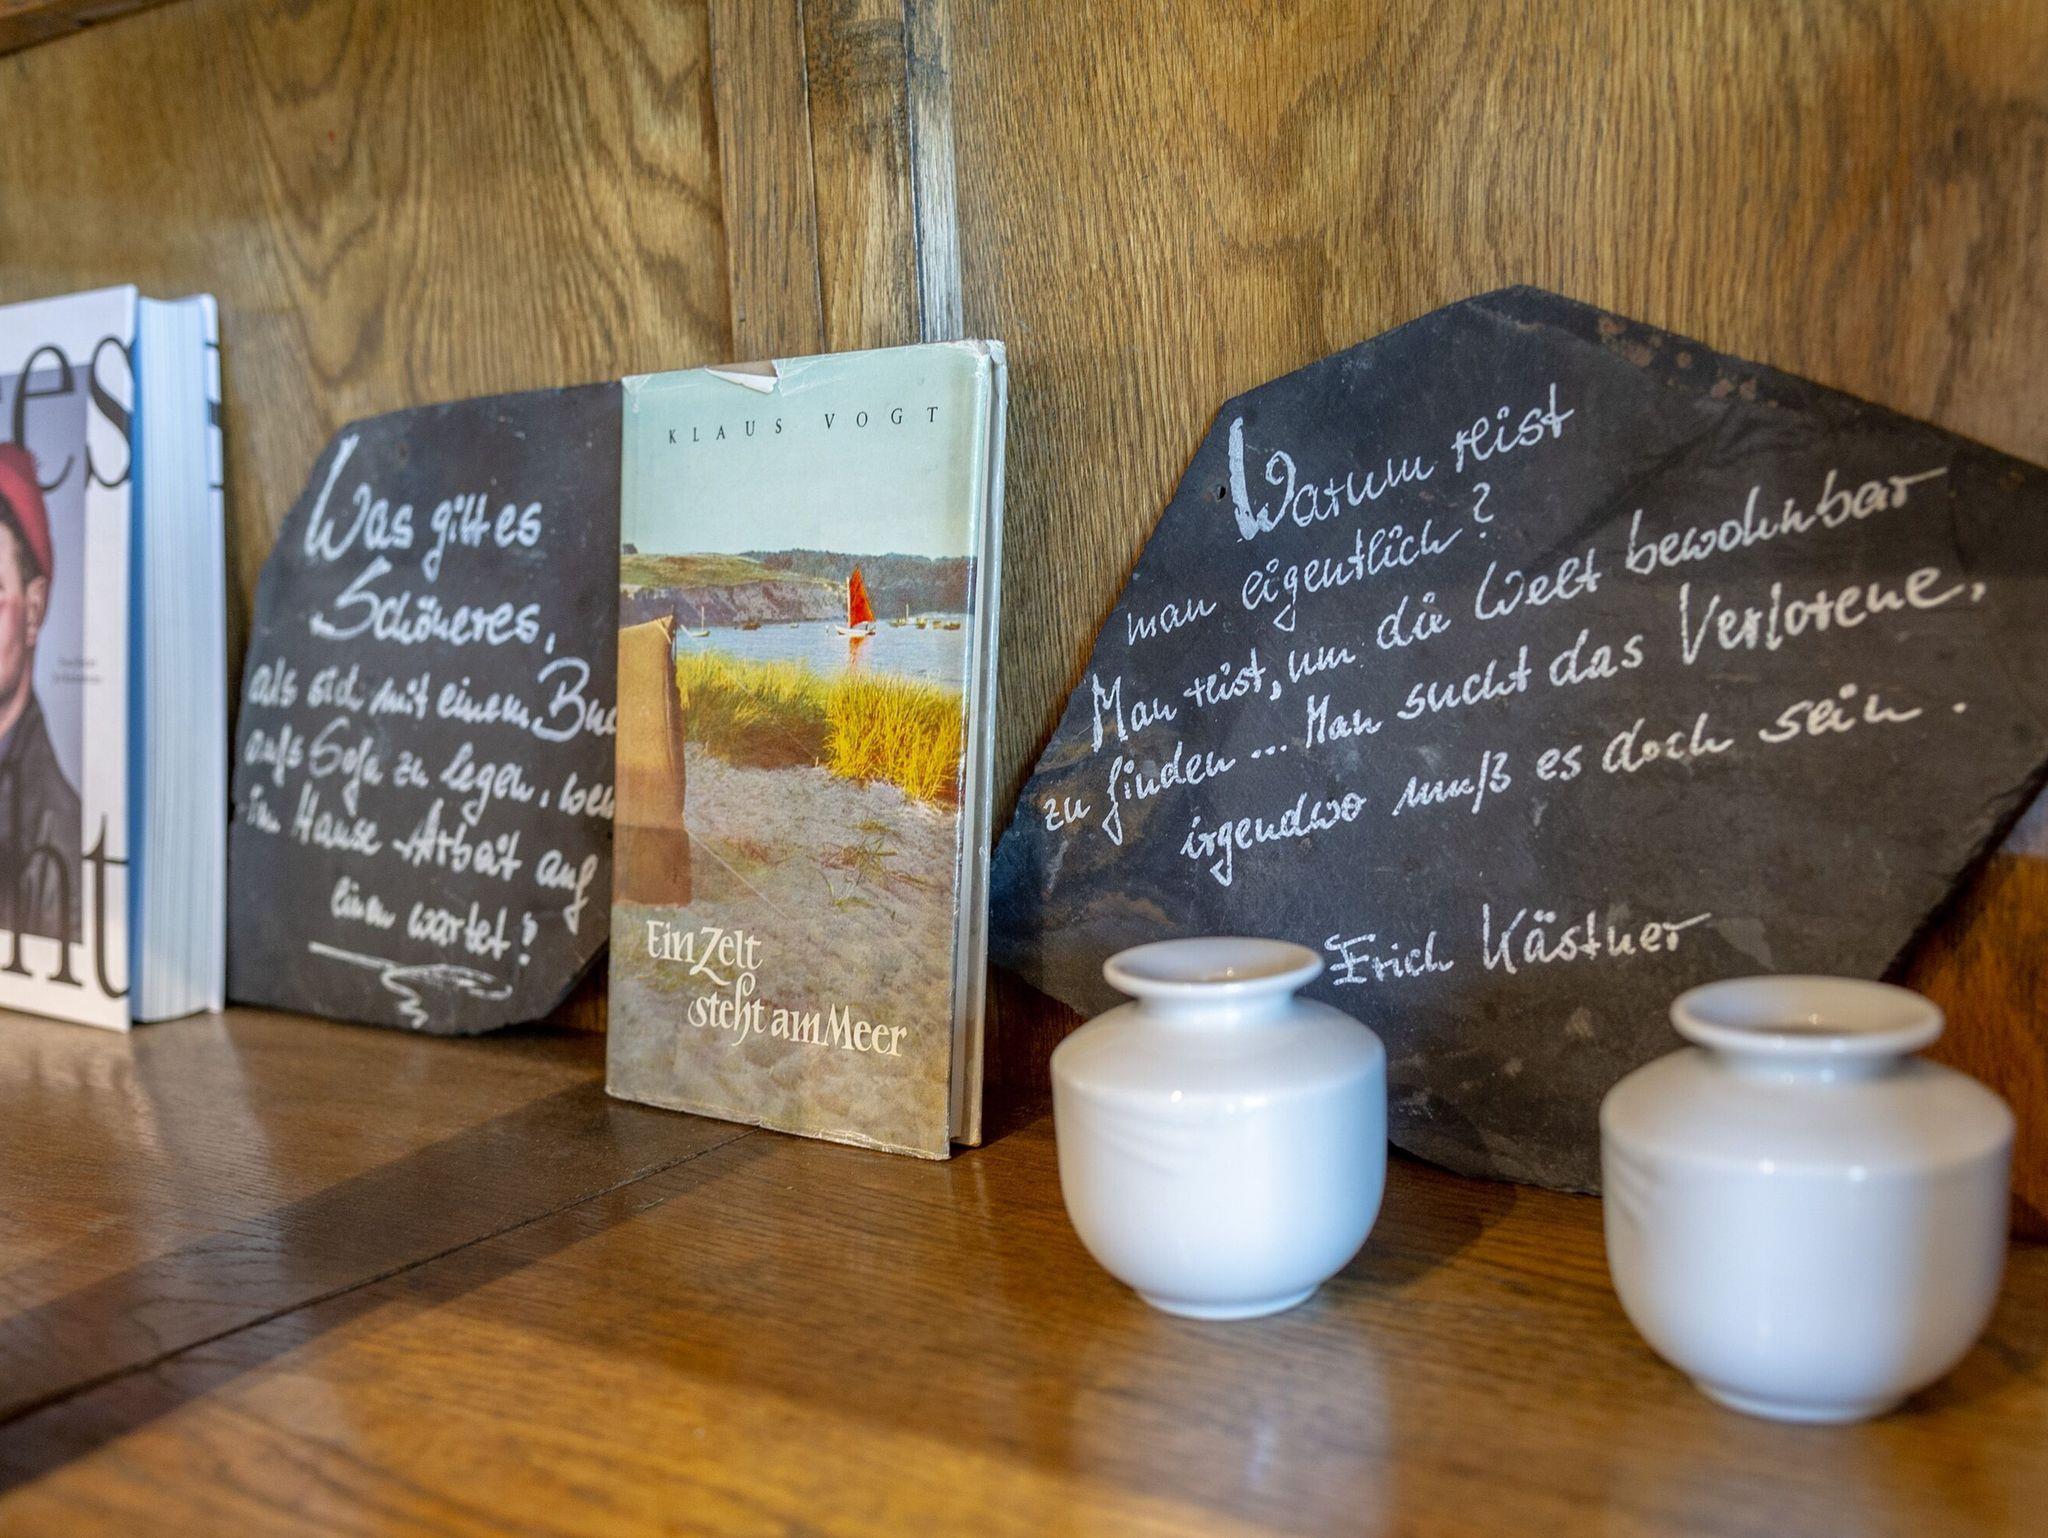 es
ht
Was gibt es
Schöneres,
als sich mit einem Buc
aufs Sofa zu legen, wen
im Hause Arbeit auf
einen wartet!
KLAUS VOGT
Ein Zelt
steht am Meer
Warum reist
man eigentlich?
Man reist, um die Welt bewohnbar
zu finden... Man sucht das Verlorene,
irgendwo muß es doch sein.
Erich Kästner